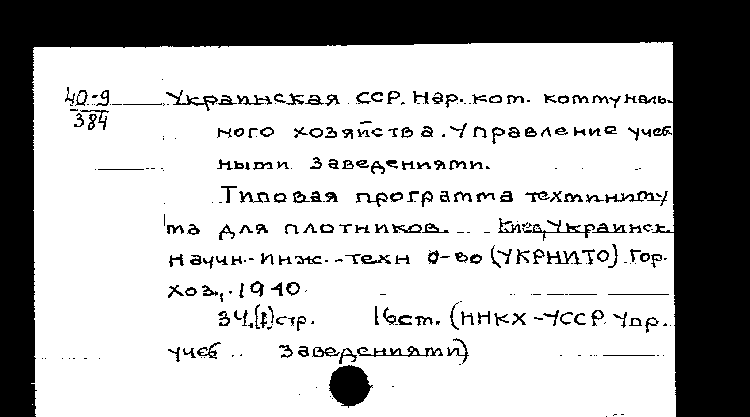 40-9
384
Украинская ССР. Нар. ком. коммуналь-
ного хозяйства. Управление учеб
ными заведениями.
Типовая программа техминиму
ма для плотников. Киев, Украинск.
научн.-инж.-техн о-во (УКРНИТО) Гор.
хоз., 1940.
34,[1] стр. 16ст. (ННКХ-УССР Упр.
учеб заведениями)